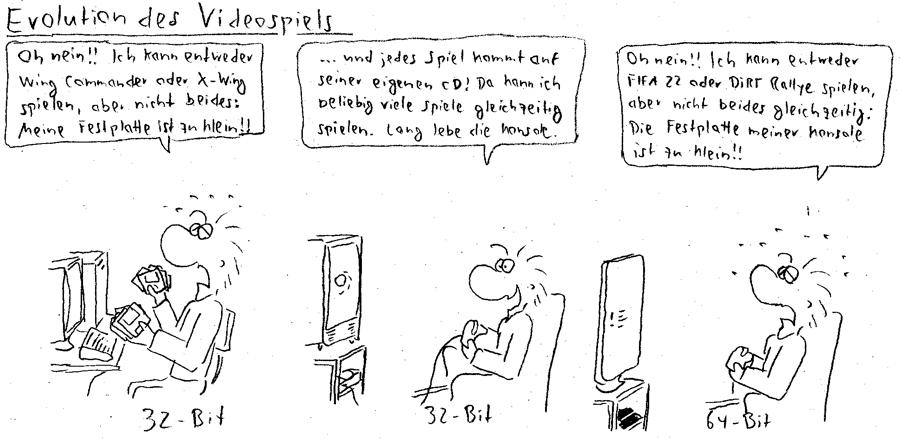 Evolution des Videospiels
Oh nein!! Ich kann entweder
Wing Commander oder X-Wing
spielen, aber nicht beides:
Meine Festplatte ist zu klein!!
... und jedes Spiel kommt auf
seiner eigenen CD! Da kann ich
beliebig viele Spiele gleichzeitig
spielen. Lang lebe die Konsole.
Oh nein!! Ich kann entweder
FIFA 22 oder DiRT Rallye spielen,
aber nicht beides gleichzeitig:
Die Festplatte meiner Konsole
ist zu klein!!
!
32-Bit
32-Bit
64-Bit